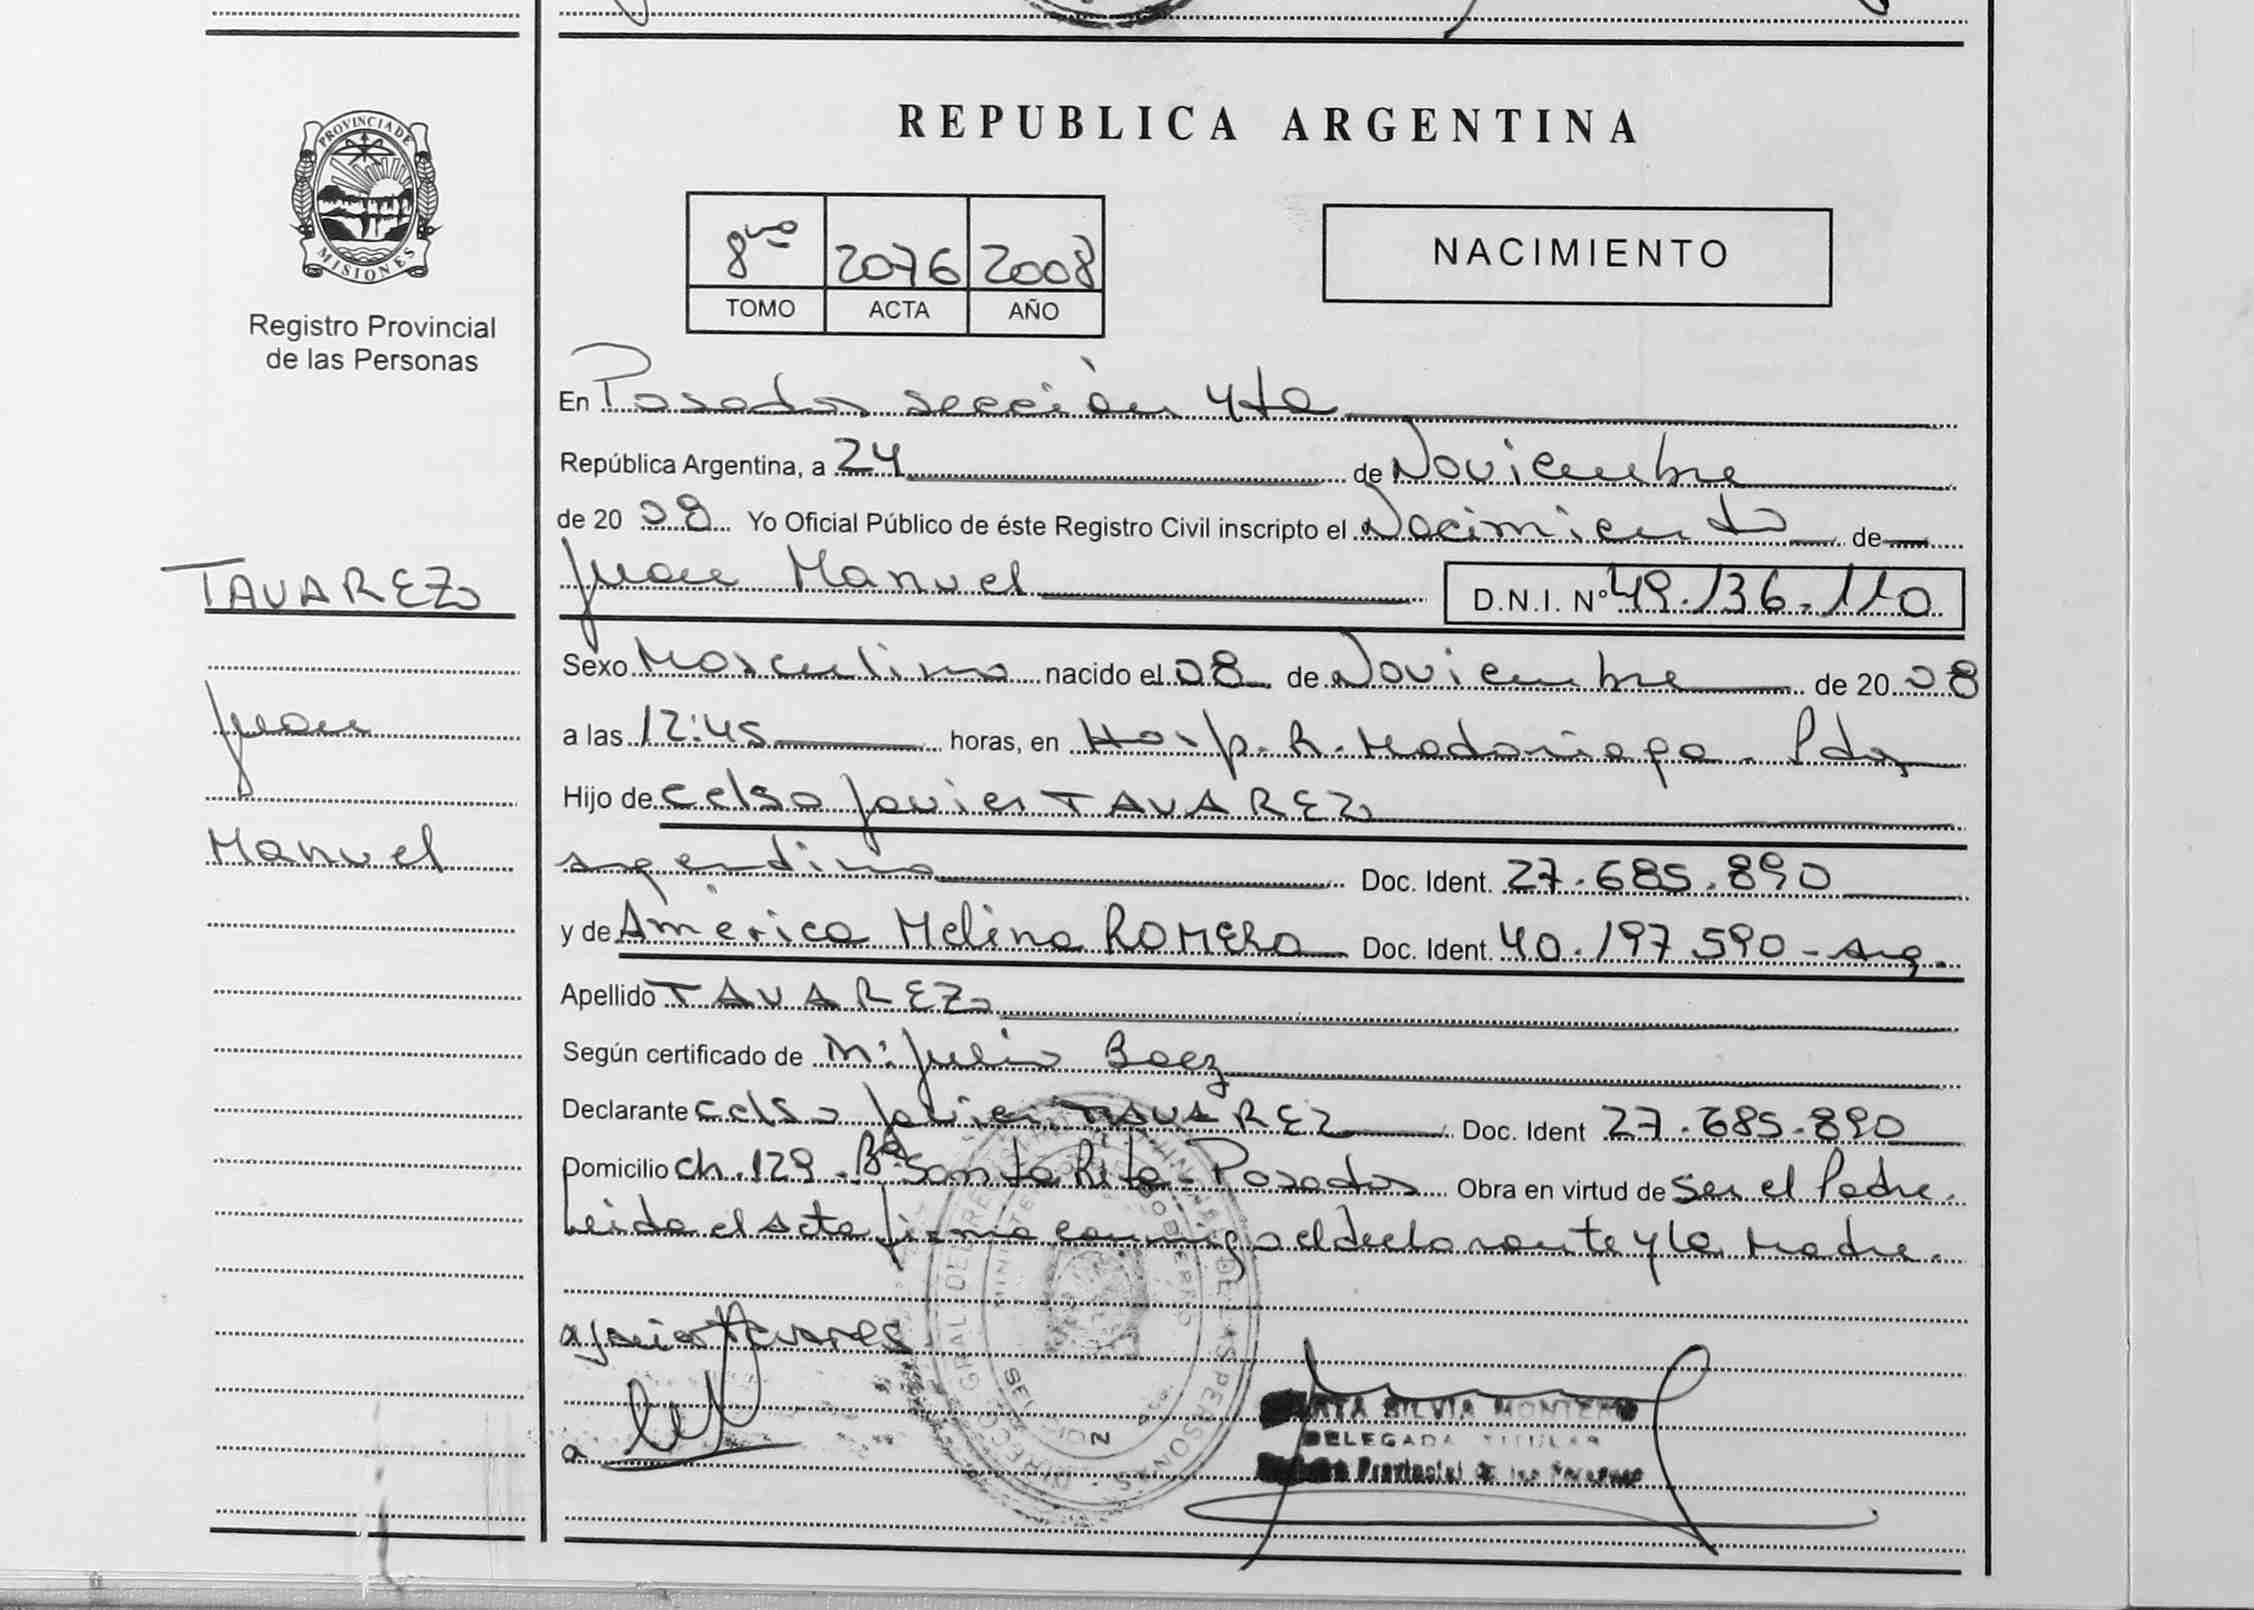 PROVINCIA DE
MISIONES
Registro Provincial
de las Personas
TAVAREZ
Juan
Manuel
REPUBLICA ARGENTINA
8vo 2076 2008
TOMO ACTA AÑO
NACIMIENTO
En Posadas sección 4ta
República Argentina, a 24 de Noviembre
de 20 08 Yo Oficial Público de éste Registro Civil inscripto el Nacimiento de
Juan Manuel D.N.I. Nº 49.136.110
Sexo Masculino nacido el 08 de Noviembre de 20 08
a las 12:45 horas, en Hosp. R. Madariaga. Pdas
Hijo de Celso Javier TAVAREZ
argentino Doc. Ident. 27.685.890
y de América Melina ROMERO Doc. Ident. 40.197.590 - Arg.
Apellido TAVAREZ
Según certificado de Mª Julia Baez
Declarante Celso Javier TAVAREZ Doc. Ident 27.685.890
Domicilio Ch. 129 - Bº Santa Rita - Posadas Obra en virtud de Ser el Padre.
Leida el acta firma conmigo el declarante y la Madre.
Javier Tavares
SILVIA MONTERO
DELEGADA TITULAR
Provincial de las Personas